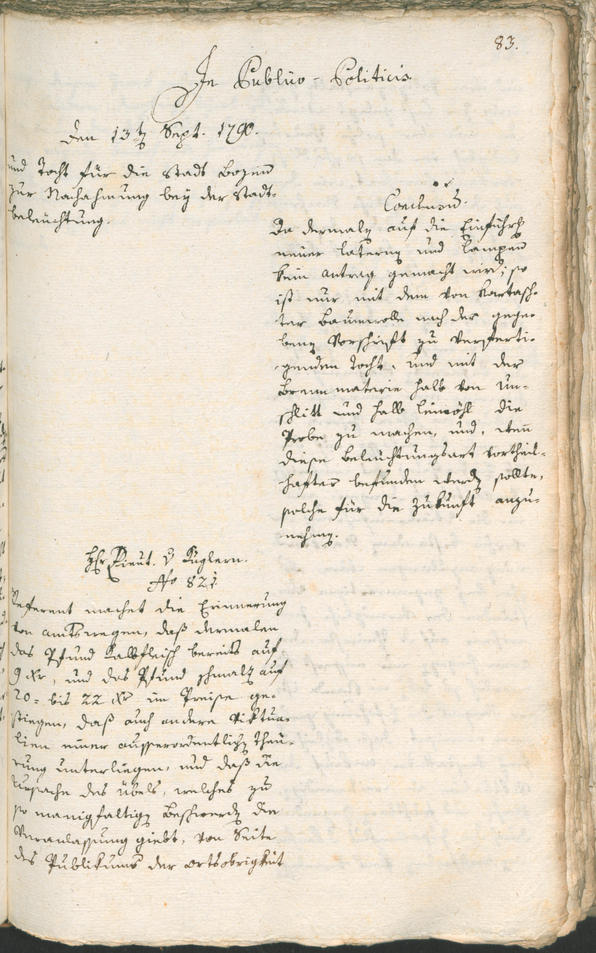 83.
In Publico-Politicis
Den 13t Sept. 1790.
und Tocht für die Stadt Bozen
zur Nachahmung bey der Stadt-
beleuchtung.
Conclusum.
Da dermaln auf die Einführg
neuer Laternn und Lampen
kein Antrag gemacht wird; so
ist nur mit dem von
ter Baumwolle nach der gege-
benn Vorschrift zu verferti-
genden Tocht, und mit der
Brennmaterie halb von Un-
schlitt und halb Leinöhl die
Probe zu machen, und, wenn
diese Beleuchtungsart vortheil-
hafter befunden werdn sollte,
solche für die Zukunft anzu-
nehmen.
Hr Lieut. v Kuglern.
No 821
Referent machet die Erinnerung
von amtswegen, daß dermalen
das Pfund Kalbfleisch bereits auf
9 Xr, und das Pfund Schmalz auf
20= bis 22 Xr im Preise ge-
stiegen, daß auch andere Viktua-
lien einer ausserordentlichn Theu-
rung unterliegen, und daß die
Ursache des Übels, welches zu
so manigfaltign Beschwerdn die
Veranlassung giebt, von Seite
des Publikums der Ortsobrigkeit